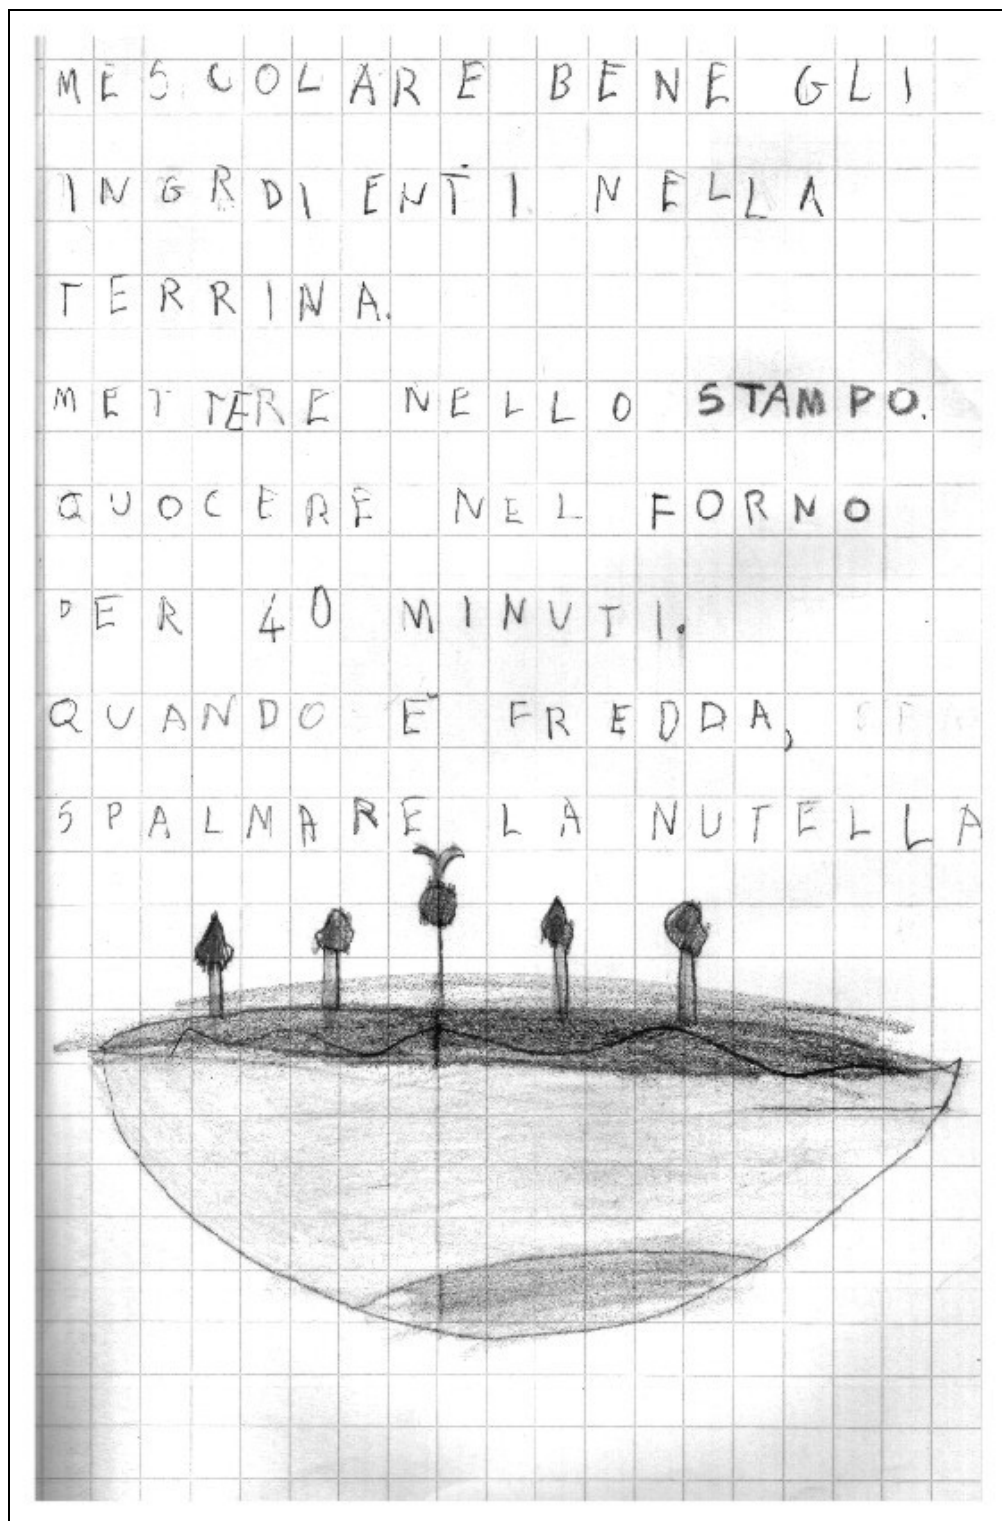 MESCOLARE BENE GLI
INGRDIENTI NELLA
TERRINA.
METTERE NELLO STAMPO.
QUOCERE NEL FORNO
PER 40 MINUTI.
QUANDO È FREDDA,
SPALMARE LA NUTELLA